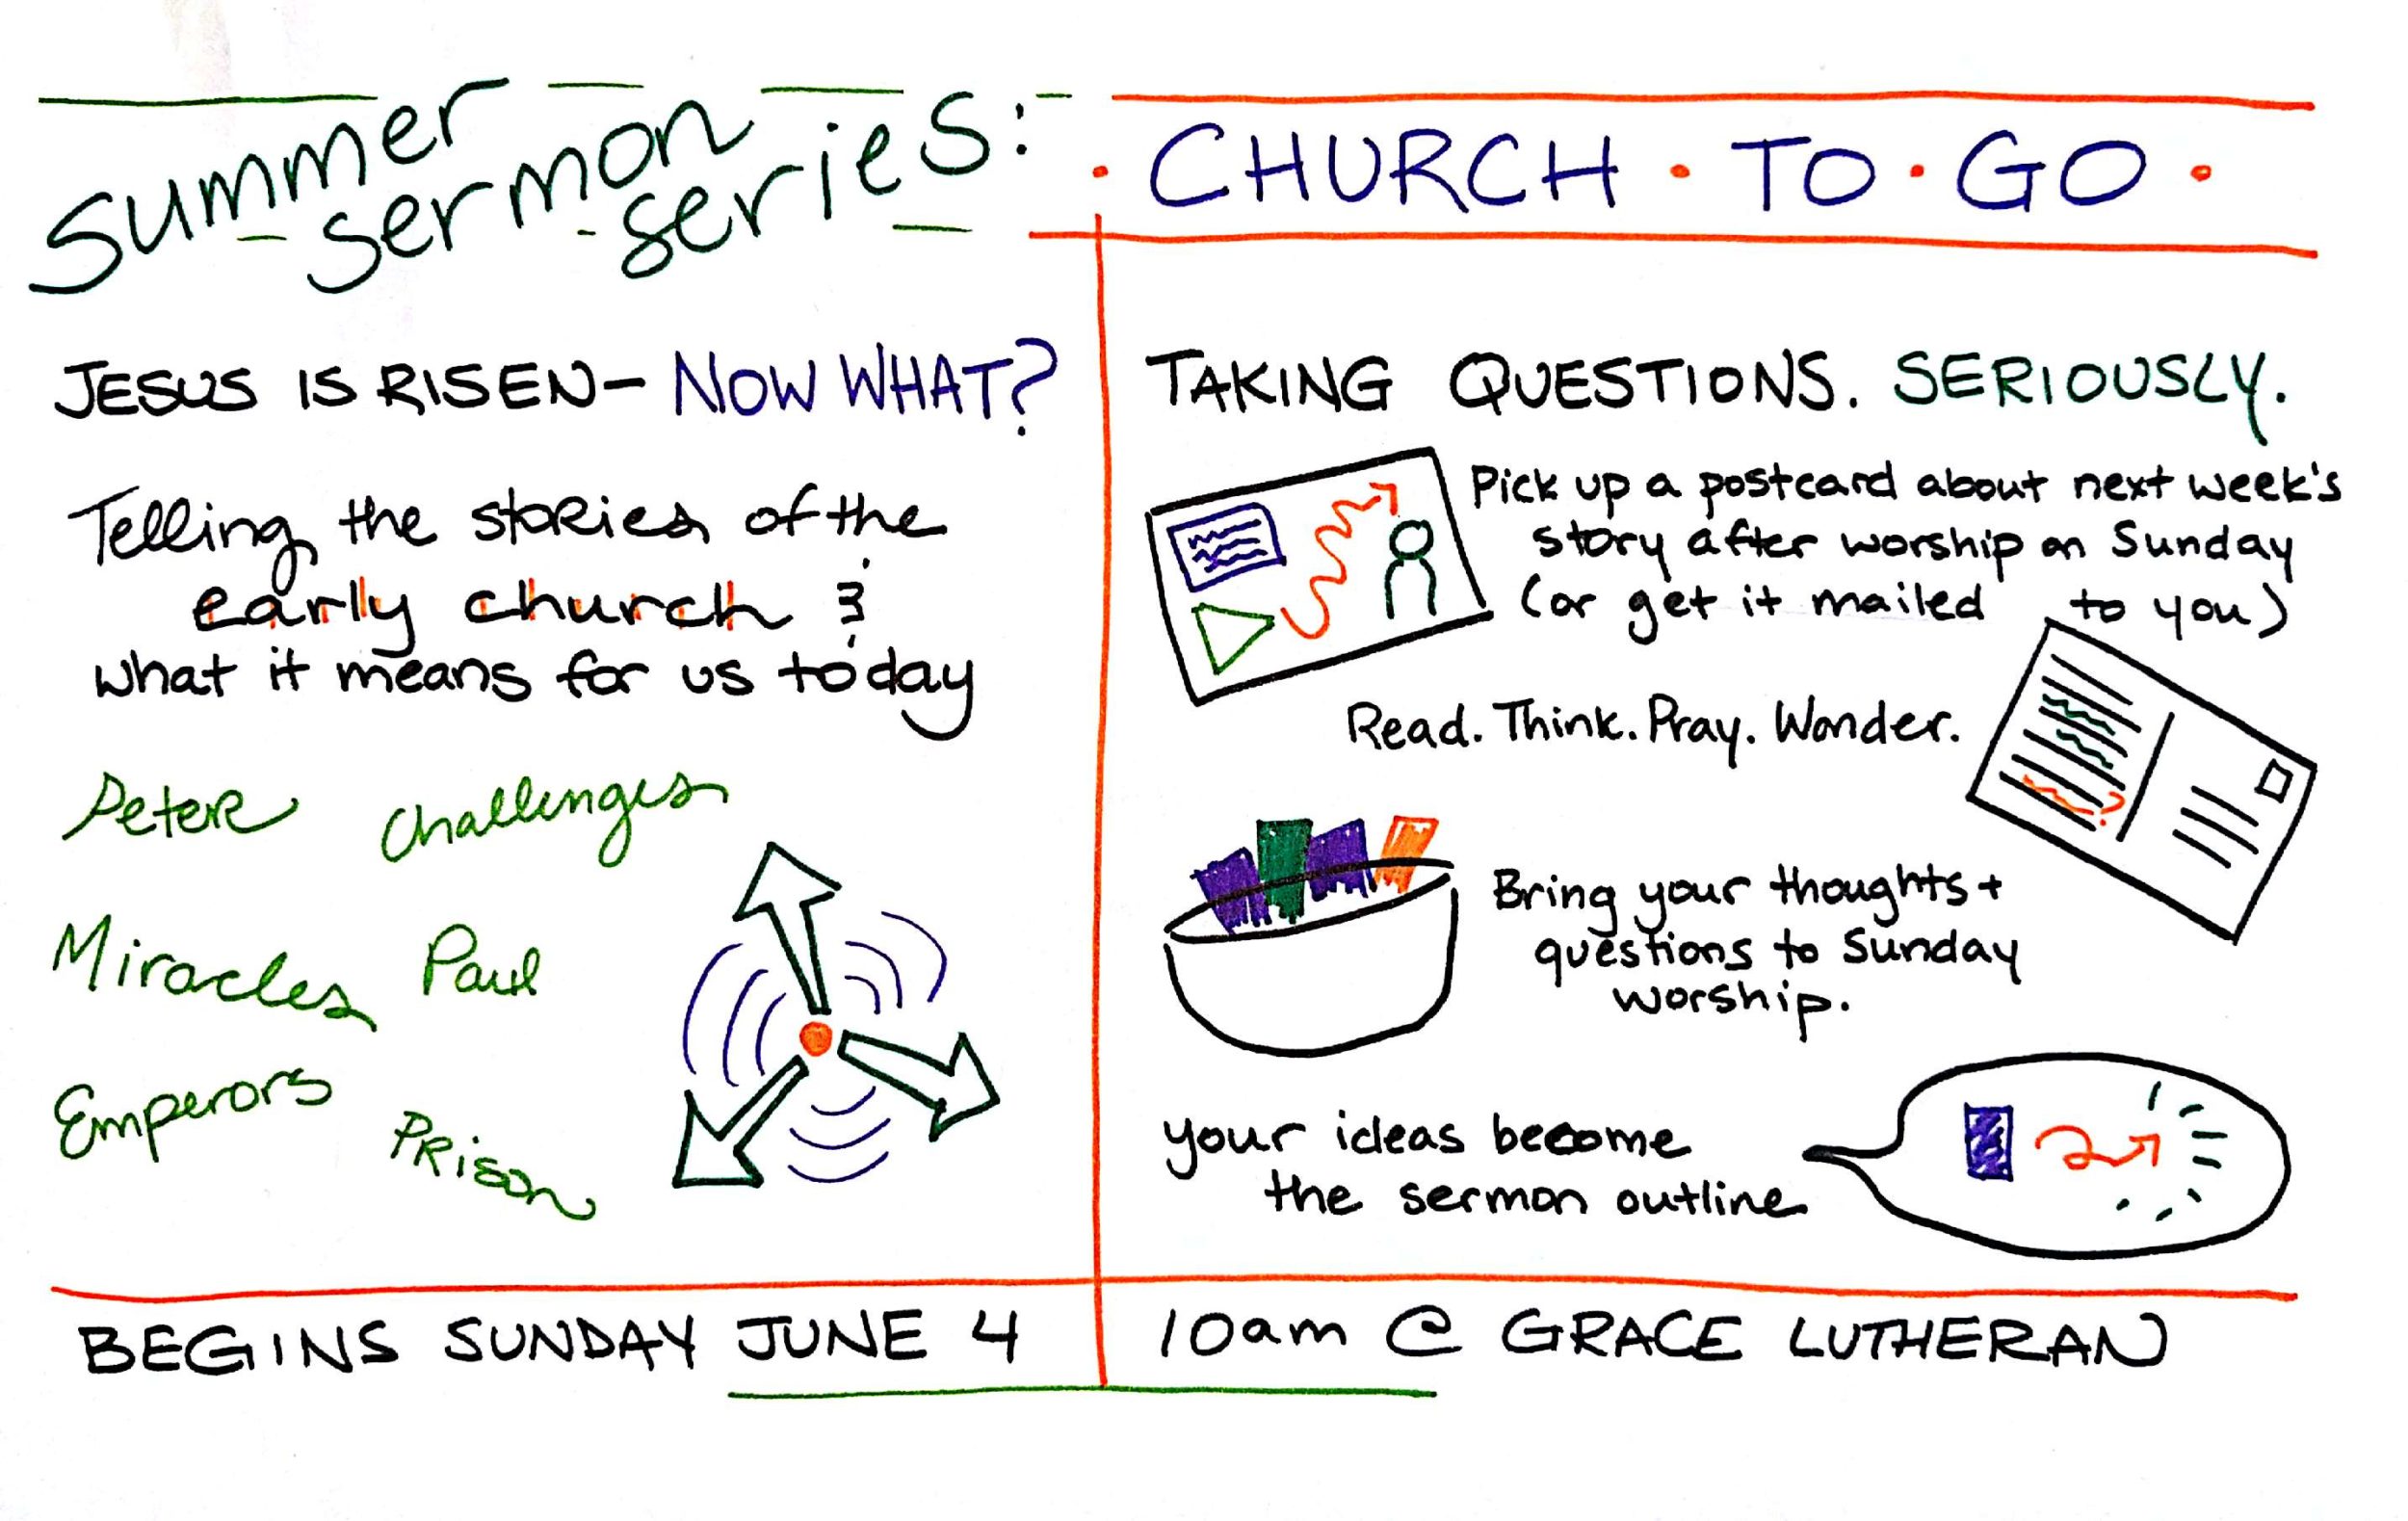 summer
sermon
series:
• CHURCH • TO • GO •
JESUS IS RISEN— NOW WHAT?
Telling the stories of the
early church &
what it means for us today
Peter Challenges
Miracles Paul
Emperors Prison
TAKING QUESTIONS. SERIOUSLY.
Pick up a postcard about next week's
story after worship on Sunday
(or get it mailed to you)
Read. Think. Pray. Wonder.
Bring your thoughts +
questions to Sunday
worship.
your ideas become
the sermon outline
BEGINS SUNDAY JUNE 4
10am @ GRACE LUTHERAN